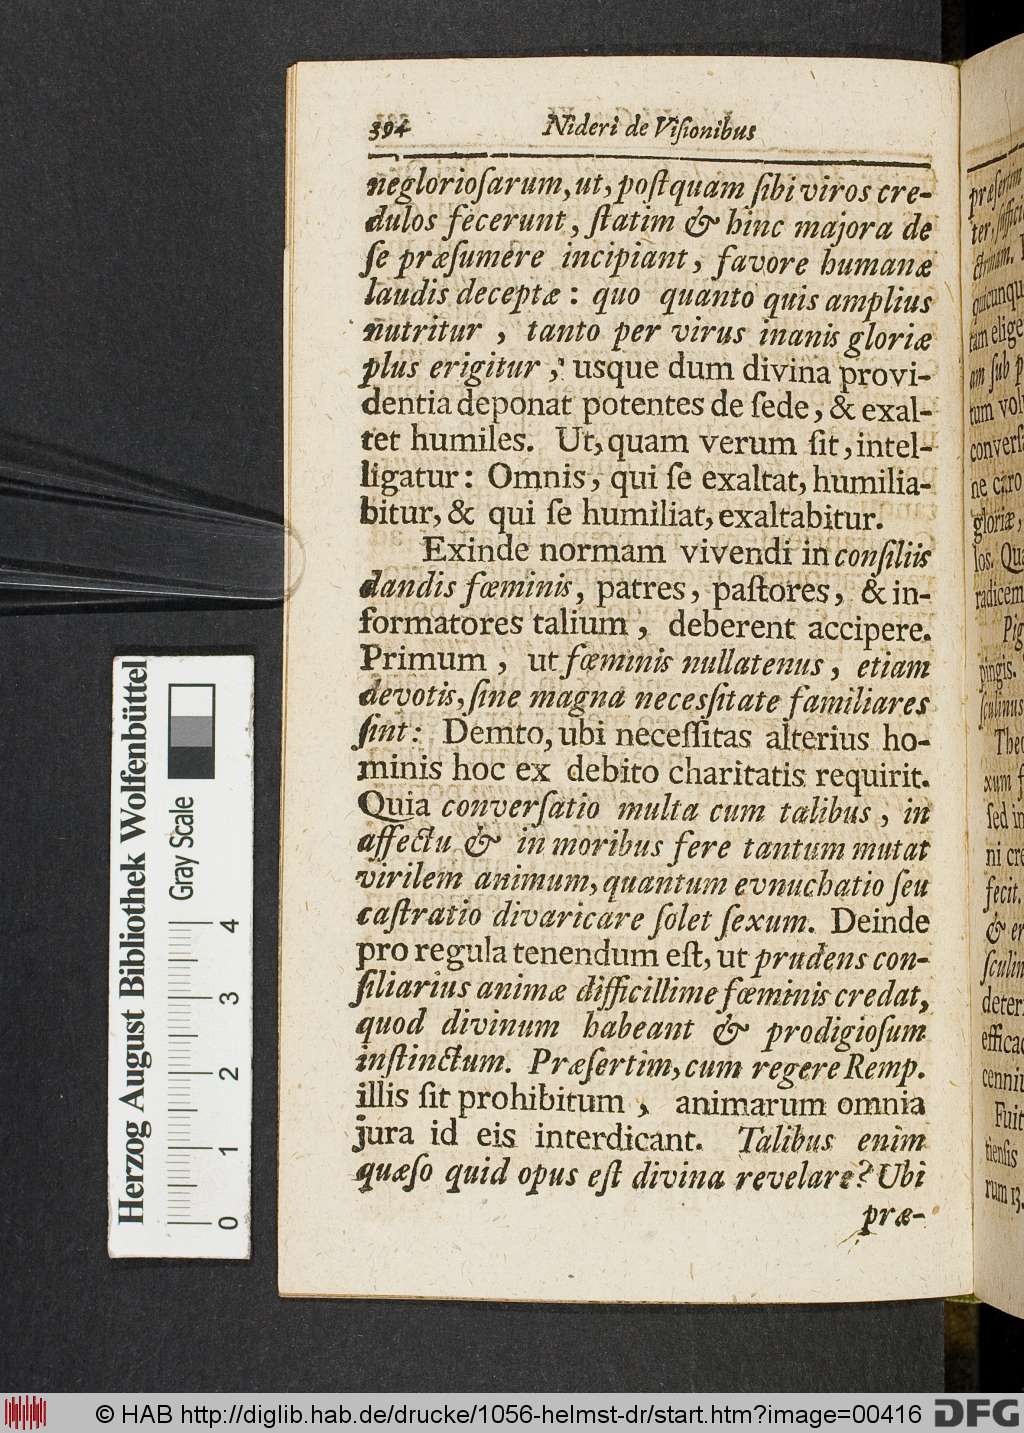 394 Nideri de Viſionibus
neglorioſarum, ut, poſtquam ſibi viros cre-
dulos fecerunt, ſtatim & hinc majora de
ſe præſumere incipiant, favore humanæ
laudis deceptæ: quo quanto quis amplius
nutritur, tanto per virus inanis gloriæ
plus erigitur, usque dum divina provi-
dentia deponat potentes de ſede, & exal-
tet humiles. Ut, quam verum ſit, intel-
ligatur: Omnis, qui ſe exaltat, humilia-
bitur, & qui ſe humiliat, exaltabitur.
Exinde normam vivendi in conſiliis
dandis fœminis, patres, paſtores, & in-
formatores talium, deberent accipere.
Primum, ut fœminis nullatenus, etiam
devotis, ſine magna neceſſitate familiares
ſint: Demto, ubi neceſſitas alterius ho-
minis hoc ex debito charitatis requirit.
Quia converſatio multa cum talibus, in
affectu & in moribus fere tantum mutat
virilem animum, quantum evnuchatio ſeu
caſtratio divaricare ſolet ſexum. Deinde
pro regula tenendum eſt, ut prudens con-
ſiliarius animæ difficillime fœminis credat,
quod divinum habeant & prodigioſum
inſtinctum. Præſertim, cum regere Remp.
illis ſit prohibitum, animarum omnia
jura id eis interdicant. Talibus enim
quæſo quid opus eſt divina revelare? Ubi
præ-
præſertim
ter, ſuffici
ctrinam.
quicunqu
tam elige
am ſub p
tum volu
converſa
ne caro
gloriæ,
los. Qua
radicem
Pig
pingis.
ſculinus
Theo
xum f
ſed in
ni cre
fecit.
& er
ſculin
deteri
efficac
cenniu
Fuit
tienſis
rum 13.
Herzog August Bibliothek Wolfenbüttel
Gray Scale
0 1 2 3 4
© HAB http://diglib.hab.de/drucke/1056-helmst-dr/start.htm?image=00416 DFG